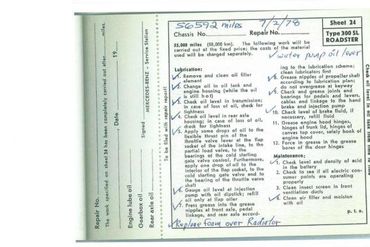 56592 miles 7/2/78
Chassis No. Repair No.
Sheet 24
Type 300 SL
ROADSTER
35,000 miles (55,000 km). The following work will be
carried out at the fixed price; the costs of the material
used will be charged separately.
water pump oil level
Lubrication:
Remove and clean oil filler
element
Change oil to oil tank and
engine housing (while the oil
is still hot)
Check oil level in transmission;
in case of loss of oil, check
for tightness
Check oil level in rear axle
housing; in case of loss of oil,
check for tightness
Apply some drops of oil to the
flexible thrust pin of the
throttle valve lever at the flap
socket of the intake line, to the
partial load valve, to the
bearings of the cold starting
gate valve control. Furthermore,
apply one drop of oil to the
interior of the flap socket, to the
cold starting gate valve and to
the bearing of the throttle valve
shaft
Gauge oil level at injection
pump with oil dipstick; refill
oil only at flap oiler
Press grease into the grease
nipples at front axle, pedal
linkage, and rear axle accord-
Replace Foam over Radiator
ing to the lubrication scheme;
clean lubricators first
Grease nipples of propeller shaft
according to lubrication plan;
do not overgrease at keyway
Check and grease or oil all
bearings for pedals and levers,
cables and linkage to the hand
brake and injection pump
10. Check level of brake fluid, if
necessary, refill fluid
11. Grease engine hood hinges,
hinges of trunk lid, hinges of
canvas top cover, safety hook of
engine hood
12. Force in grease in the grease
bores of the door hinges
Maintenance:
1. Check level and density of acid
in the battery
2. Check to see if all electric con-
sumer points are operating
properly
3. Clean insect screen in front
ventilation ducts
4. Clean air filter and moisten
with oil
p. t. o.
To be filed with repair report!
MERCEDES-BENZ - Service Station
Signed
Date 19
The work specified on sheet 24 has been completely carried out after miles.
Repair No.
Engine lube oil
Gearbox oil
Rear axle oil